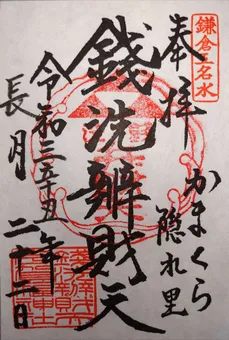 鎌倉五名水
奉拝
かまくら
隠れ里
銭洗辦財天
令和三辛丑年
長月
二十二日